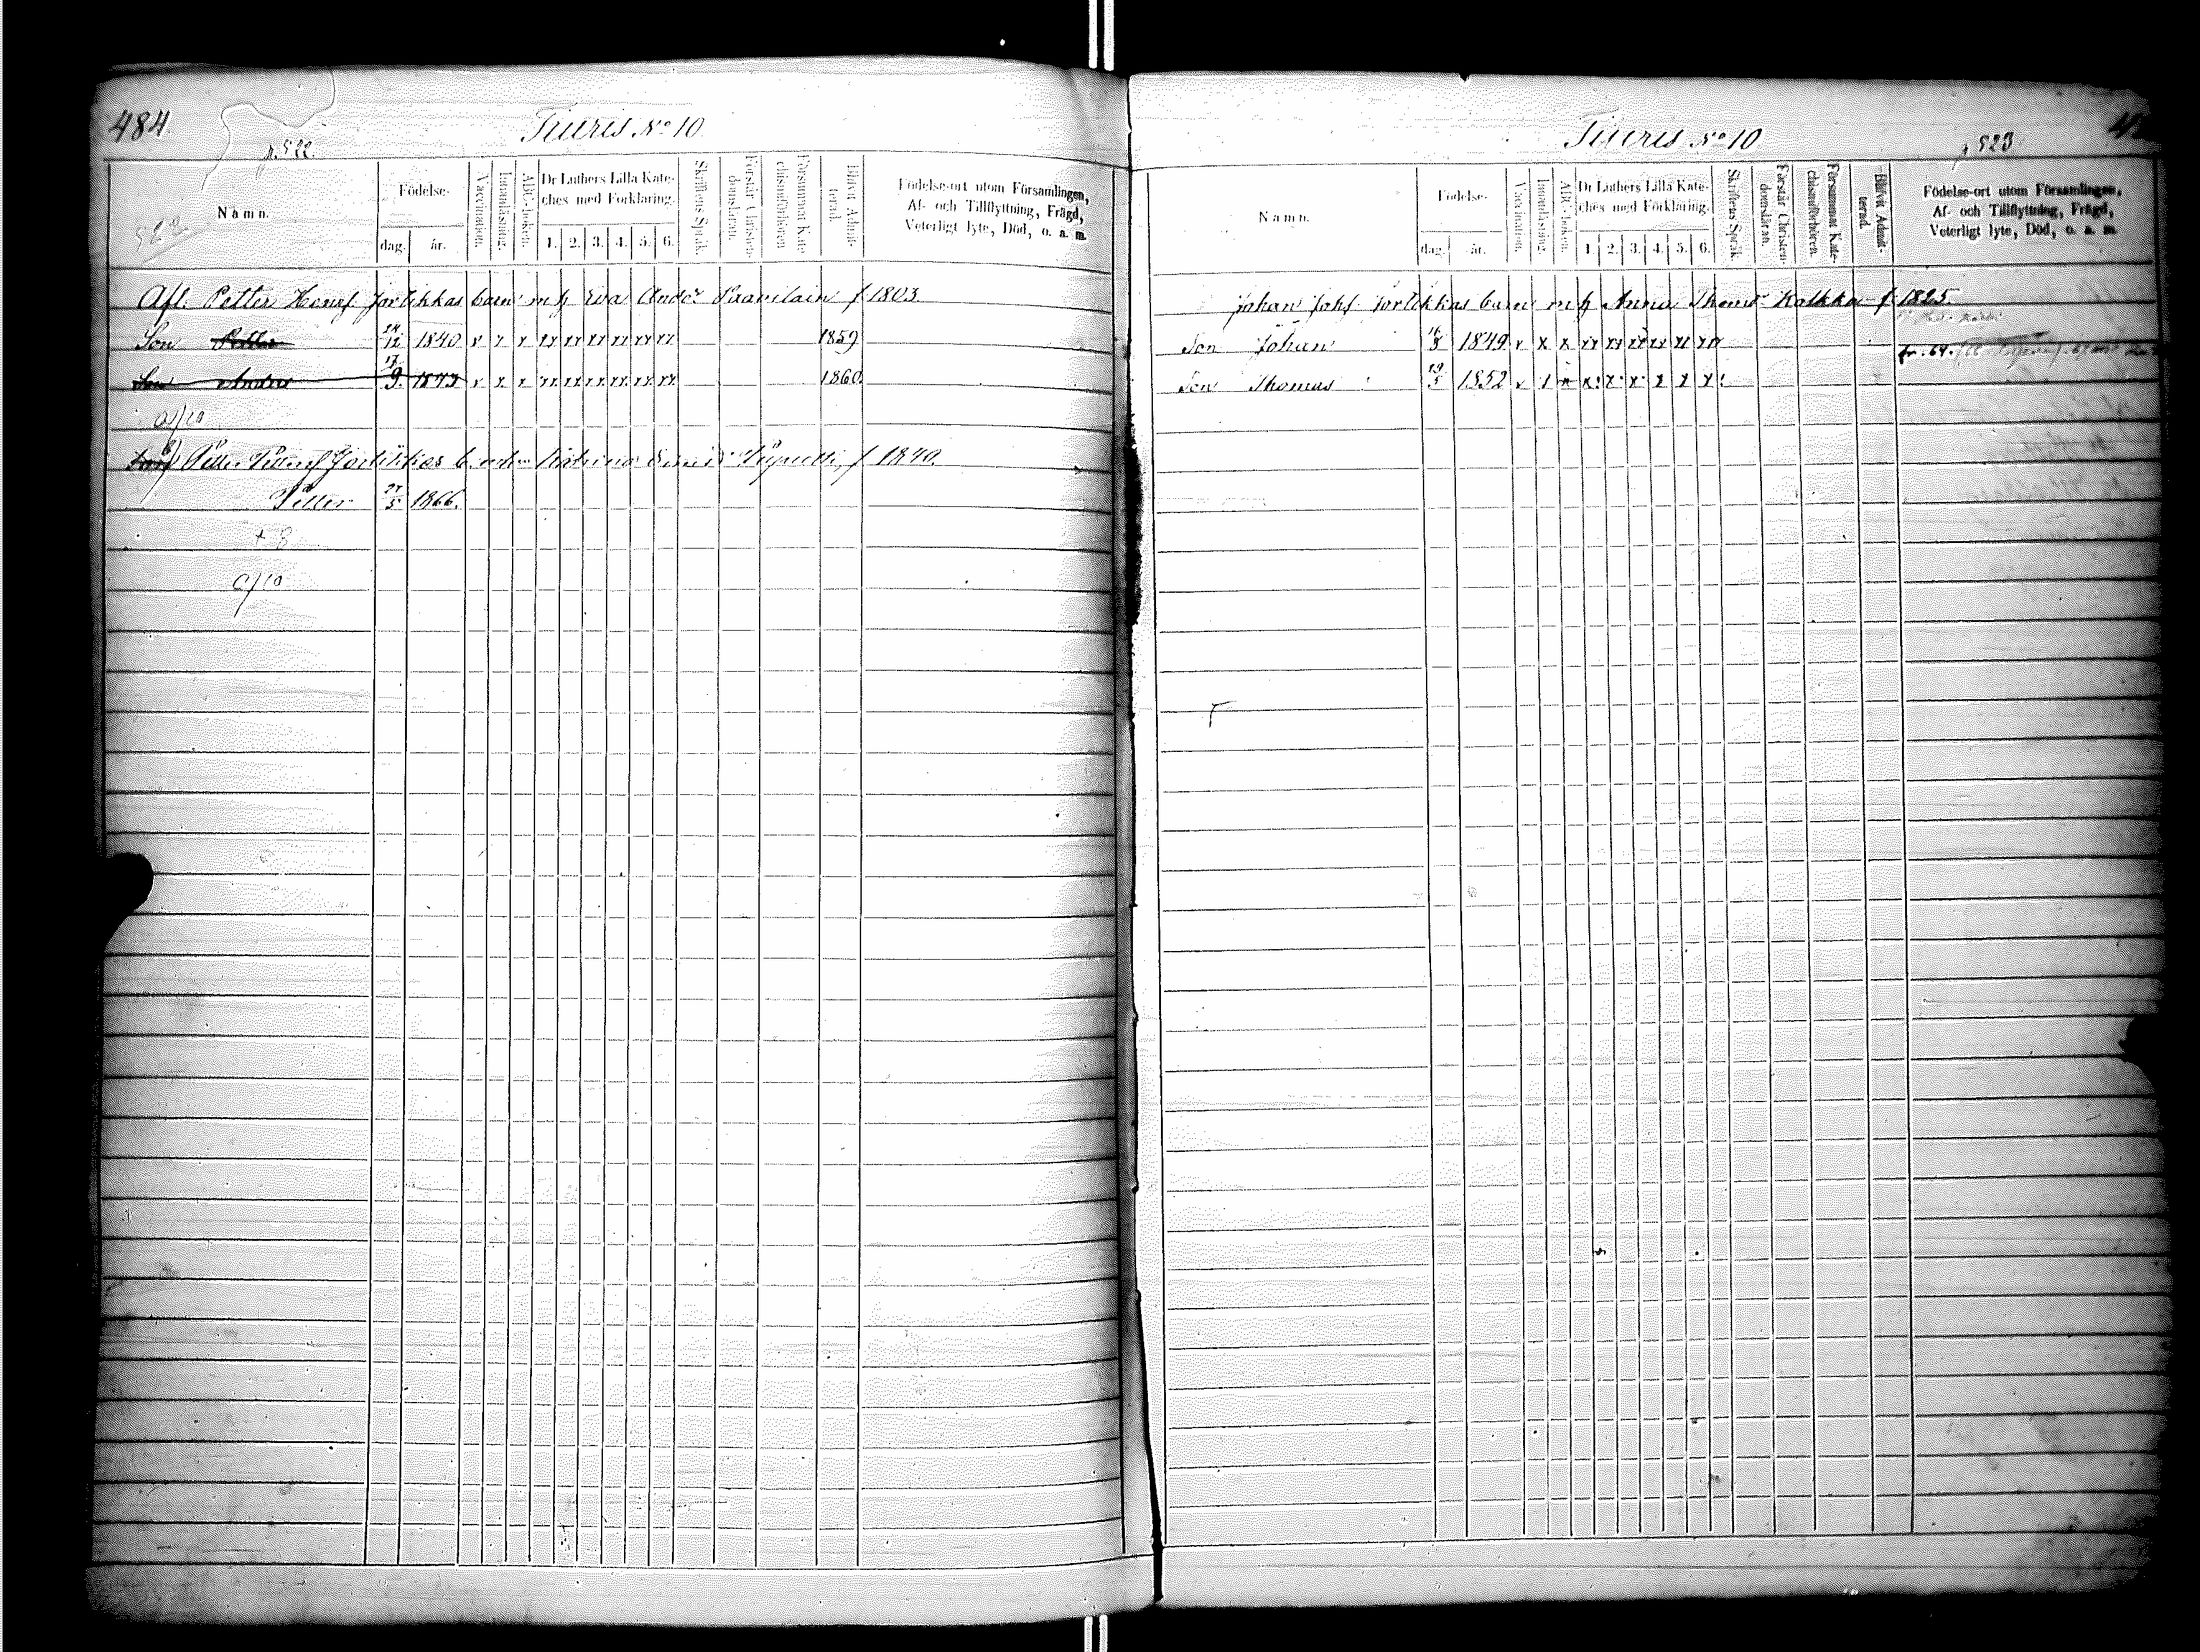 484
Tiuris No 10
p. 522.
522
Namn.
Födelse-
dag.
år.
Vaccination.
Innanläsning.
ABC-boken.
Dr Luthers Lilla Kate-
ches med Förklaring.
1. 2. 3. 4. 5. 6.
Skriftens Språk.
Förstår Christen-
domsläran.
Försummat Kate-
chismiförhören.
Blifvit Admit-
terad.
Födelse-ort utom Församlingen,
Af- och Tillflyttning, Frägd,
Veterligt lyte, Död, o. a. m.
Afl. Petter Hansf Jortikkas barn m h Eva Andsr Paavilain f 1803
Son Petter 24/12 1840 x x x xx xx xx xx xx xx 1859
Son Anders 17/9 1843 x x x xx xx xx xx xx xx 1860
a/10
Petter Jortikkas b. m Katrina f 1840.
Petter 27/5 1866.
+ 8
a/10
Tiuris No 10
p 523
Namn.
Födelse-
dag.
år.
Vaccination.
Innanläsning.
ABC-boken.
Dr Luthers Lilla Kate-
ches med Förklaring.
1. 2. 3. 4. 5. 6.
Skriftens Språk.
Förstår Christen-
domsläran.
Försummat Kate-
chismiförhören.
Blifvit Admit-
terad.
Födelse-ort utom Församlingen,
Af- och Tillflyttning, Frägd,
Veterligt lyte, Död, o. a. m.
Johan Johsf Jortikkas barn m h Anna Thomsr Kalkka f 1825.
Son Johan 16/8 1849 v x x xx xx xx xx xx xx
Son Thomas 19/5 1852 v x x x x x x x x